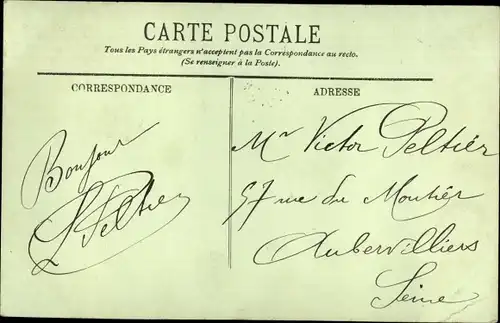 CARTE POSTALE
Tous les Pays étrangers n'acceptent pas la Correspondance au recto.
(Se renseigner à la Poste).
CORRESPONDANCE
Bonjour
L Peltier
ADRESSE
Mr Victor Peltier
57 rue du Moutier
Aubervilliers
Seine